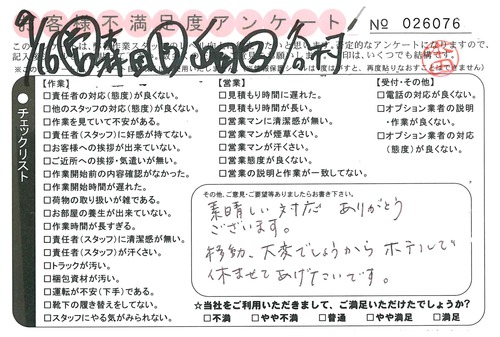 お客様不満足度アンケート
No 026076
【作業】
□責任者の対応(態度)が良くない。
□他のスタッフの対応(態度)が良くない。
□作業を見ていて不安がある。
□責任者(スタッフ)に好感が持てない。
□お客様への挨拶が出来ていない。
□ご近所への挨拶・気遣いが無い。
□作業開始前の内容確認がなかった。
□作業開始時間が遅れた。
□荷物の取り扱いが雑である。
□お部屋の養生が出来ていない。
□作業時間が長すぎる。
□責任者(スタッフ)に清潔感が無い。
□責任者(スタッフ)が汗くさい。
□トラックが汚い。
□梱包資材が汚い。
□運転が安全(下手)である。
□靴下の履き替えをしてない。
□スタッフにやる気がみられない。
【営業】
□見積もり時間に遅れた。
□見積もり時間が長い。
□営業マンに清潔感が無い。
□営業マンが煙草くさい。
□営業マンが汗くさい。
□営業態度が良くない。
□営業の説明と作業が一致してない。
【受付・その他】
□電話の対応が良くない。
□オプション業者の説明
・作業が良くない。
□オプション業者の対応
(態度)が良くない。
●チェックリスト
その他、ご意見・ご要望等ありましたらお書き下さい。
素晴しい対応 ありがとう
ございます。
移動、大変でしょうから ホテルで
休ませてあげたいです。
☆当社をご利用いただきまして、ご満足いただけたでしょうか?
□不満 □やや不満 □普通 □やや満足 □満足